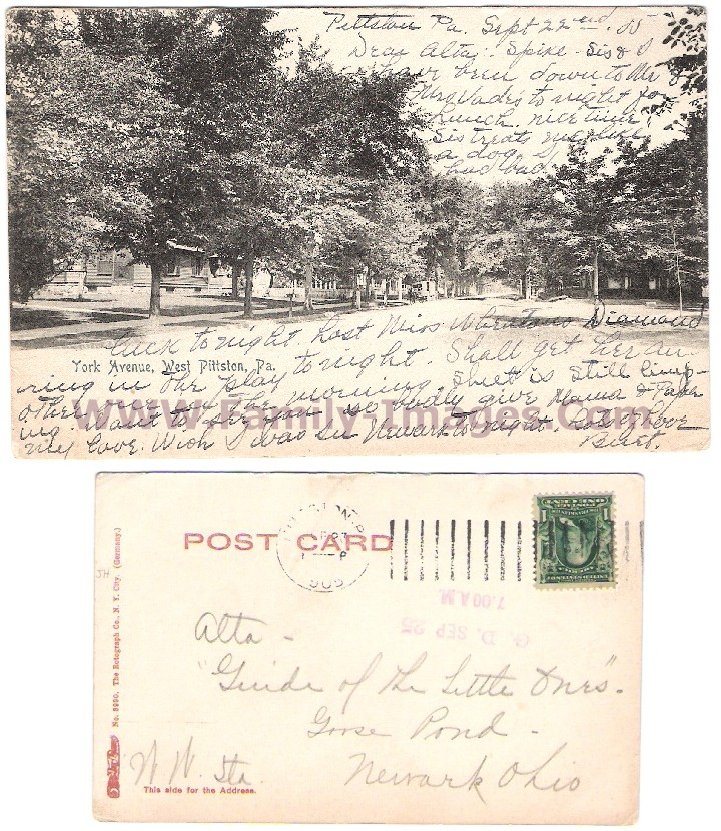 Pittston Pa. Sept 22nd, 05
Dear Alta: Spike - Sis & I
have been down to Mr &
Mrs Wade's to night for
lunch, nice time,
Sis treats me like
a dog.
too bad
luck to night. Lost Miss Wheaton's Diamond
York Avenue, West Pittston, Pa.
ring in the play to night. Shall get her an-
other in the morning. Shet is still limp-
ing. Want to see you so badly give Mama & Papa
my love. Wish I was in Newark to night.
Burt.
WWW.Family-Images.Com
POST CARD
1905
G. D. SEP 25
7.00 A.M.
Alta -
"Guide of the Little Ones".
Goose Pond -
Newark Ohio
W. W. Sta.
This side for the Address.
No. 8990, The Rotograph Co., N. Y. City. (Germany.)
JH